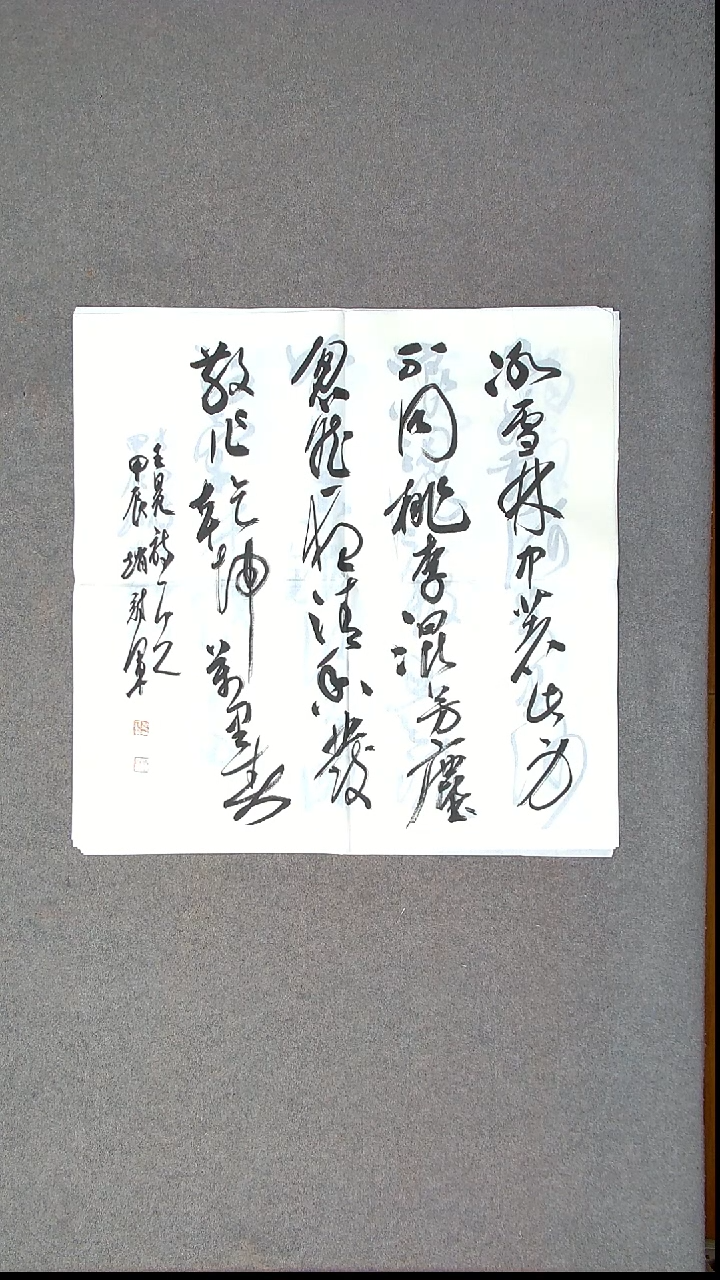 冰雪林中著此身
不同桃李混芳塵
忽然一夜清香發
散作乾坤萬里春
王冕詩一首
甲辰 軍